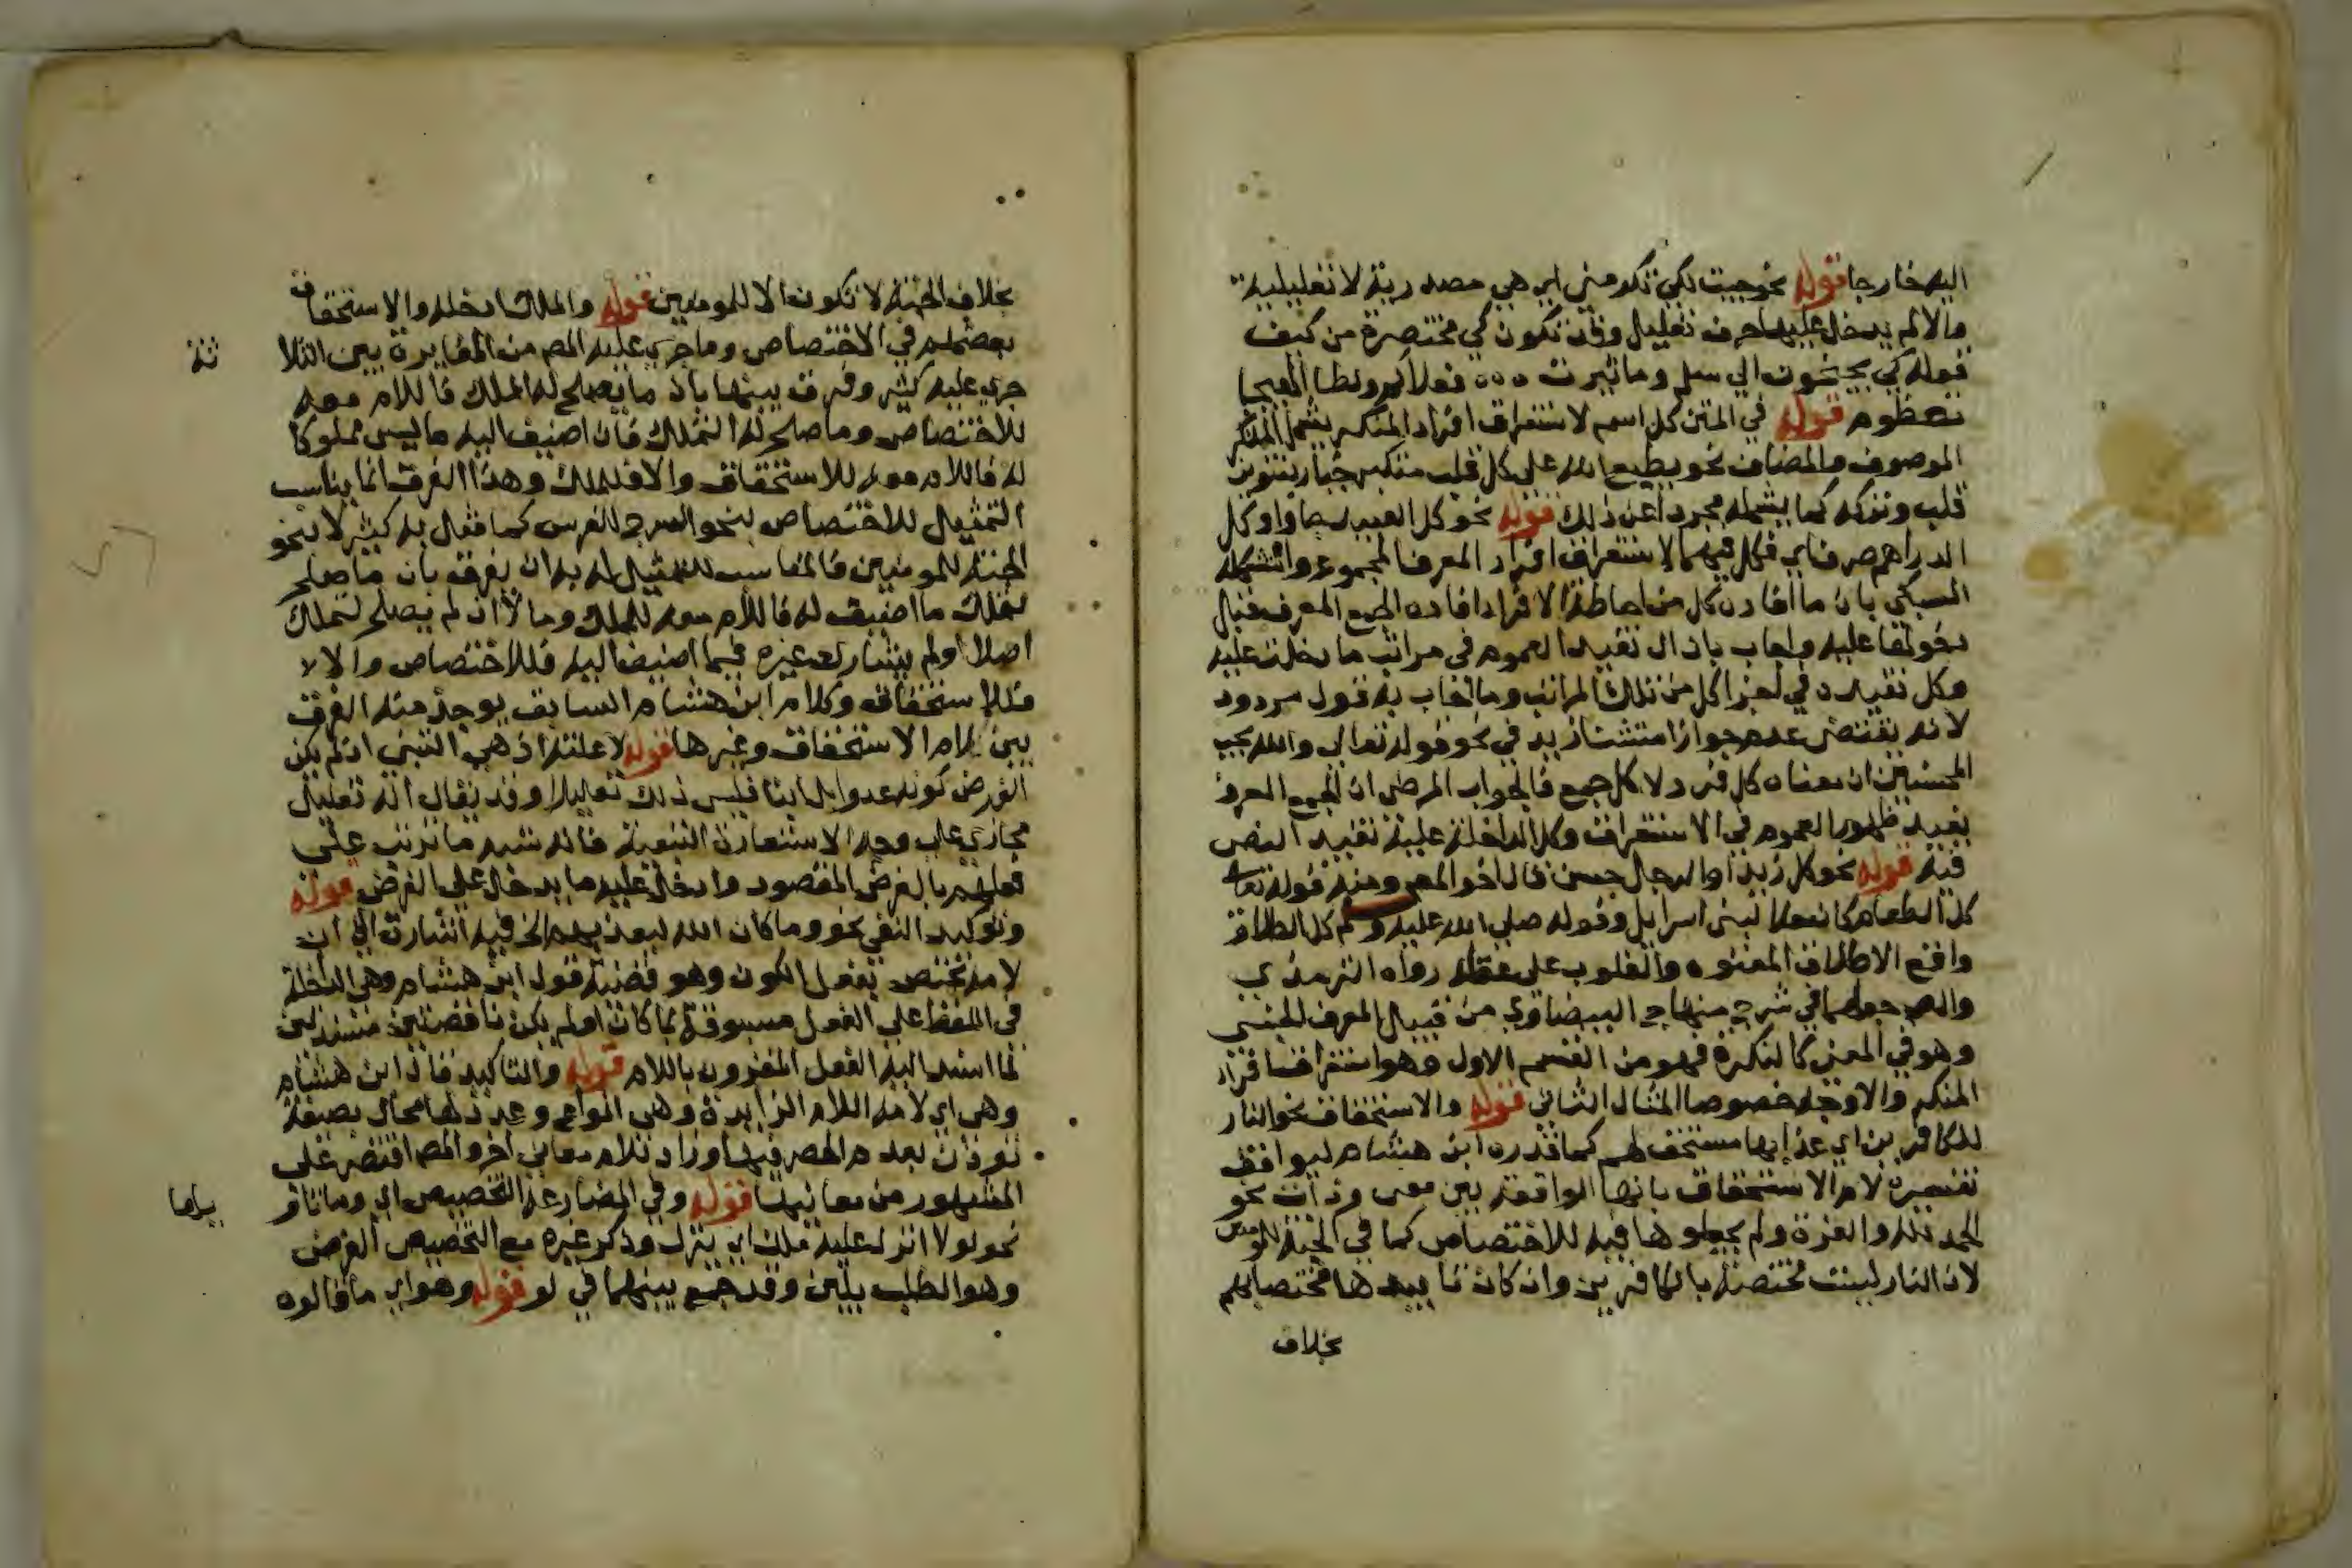 اليه خارجا قوله نحو جيت لكي تكرمني اي هي مصدرية لا تعليلية
والا لم يدخل عليها حرف تعليل وقد تكون كي مختصرة من كيف
كقوله كي تجنحون الي سلم وما ثيرت قتلاكم ولظا الهيجا
تضطرم قوله في المتن كل اسم لاستغراق افراد المنكر يشمل المنكر
الموصوف والمضاف نحو يطبع الله علي كل قلب متكبر جبار بتنوين
قلب وتركه كما يشمله مجردا عن ذلك قوله نحو كل العبيد جاوا وكل
الدراهم صرف اي فكل فيهما لاستغراق افراد المعرف المجموع واستشكله
السبكي بان ما افادته كل من احاطة الافراد افاده الجمع المعرف قبل
دخولها عليه واجاب بان ال تفيد العموم في مراتب ما دخلت عليه
وكل تفيده في اجزا كل من تلك المراتب وما اجاب به قول مردود
لانه يقتضي عدم جواز استثنا زيد في نحو قوله تعالي والله يحب
المحسنين ان معناه كل فرد لا كل جمع فالجواب المرضي ان الجمع المعرف
يفيد ظهور العموم في الاستغراق وكل الداخلة عليه تفيد النص
فيه قوله نحو كل زيد او الرجل حسن قال اخو المص ومنه قوله تعالي
كل الطعام كان حلا لبني اسرايل وقوله صلي الله عليه وسلم كل الطلاق
واقع الاطلاق المعتوه والمغلوب علي عقله رواه الترمذي
والمص جعلهما في شرح منهاج البيضاوي من قبيل المعرف الجنسي
وهو في المعني كالنكرة فهو من القسم الاول وهو استغراق افراد
المنكر والاوجه خصوصا المثال الثاني قوله والاستحقاق نحو النار
للكافرين اي عذابها مستحق لهم كما قدره ابن هشام ليوافق
تفسيره لام الاستحقاق بانها الواقعة بين معني وذات نحو
الحمد لله والعزة ولم يجعلوها فيه للاختصاص كما في الجنة للمومنين
لان النار ليست مختصة بالكافرين وان كان تابيدها مختصا بهم
بخلاف
بخلاف الجنة لا تكون الا للمومنين قوله والملك ادخله والاستحقاق
بعضهم في الاختصاص وما جري عليه المص من المغايرة بين الثلا
ثة
جري عليه كثير وفرق بينها بان ما يصلح له الملك فاللام معه
للاختصاص وما صلح له التملك فان اضيف اليه ما ليس مملوكا
له فاللام معه للاستحقاق والا فللملك وهذا الفرق انما يناسب
التمثيل للاختصاص بنحو السرج للفرس كما مثل به كثير لا بنحو
الجنة للمومنين فالمناسب للتمثيل له به ان يفرق بان ما صلح
لتملك ما اضيف له فاللام معه للملك وما لا ان لم يصلح لتملك
اصلا او لم يشاركه غيره فيما اضيف اليه فللاختصاص والا
فللاستحقاق وكلام ابن هشام السابق يوخذ منه الفرق
بين لام الاستحقاق وغيرها قوله لا علته اذ هي التبني اذ لم يكن
الغرض كونه عدوا بل ابنا فليس ذلك تعليلا وقد يقال انه تعليل
مجازي علي وجه الاستعارة التبعية فانه شبه ما ترتب علي
فعلهم بالغرض المقصود وادخل عليه ما يدخل علي الغرض قوله
وتوكيد النفي نحو وما كان الله ليعذبهم الخ فيه اشارة الي ان
لامه تختص بفعل الكون وهو قضية قول ابن هشام وهي الداخلة
في اللفظ علي الفعل مسبوقة بما كان او لم يكن ناقصتين مسندتين
لما اسند اليه الفعل المقرون باللام قوله والتاكيد قال ابن هشام
وهي اي لامه اللام الزايدة وهي انواع وعد ذلك محال بصيغة
توذن بعدم الحصر فيها وزاد للام معاني اخر والمص اقتصر علي
المشهور من معانيها قوله وفي المضارعة التحضيض اي وما تاو
يلها
نحو لولا انزل عليه ملك اي ينزل وذكر غيره مع التحضيض العرض
وهو الطلب بلين وقد جمع بينهما في لو قوله وهو اي ما قالوه